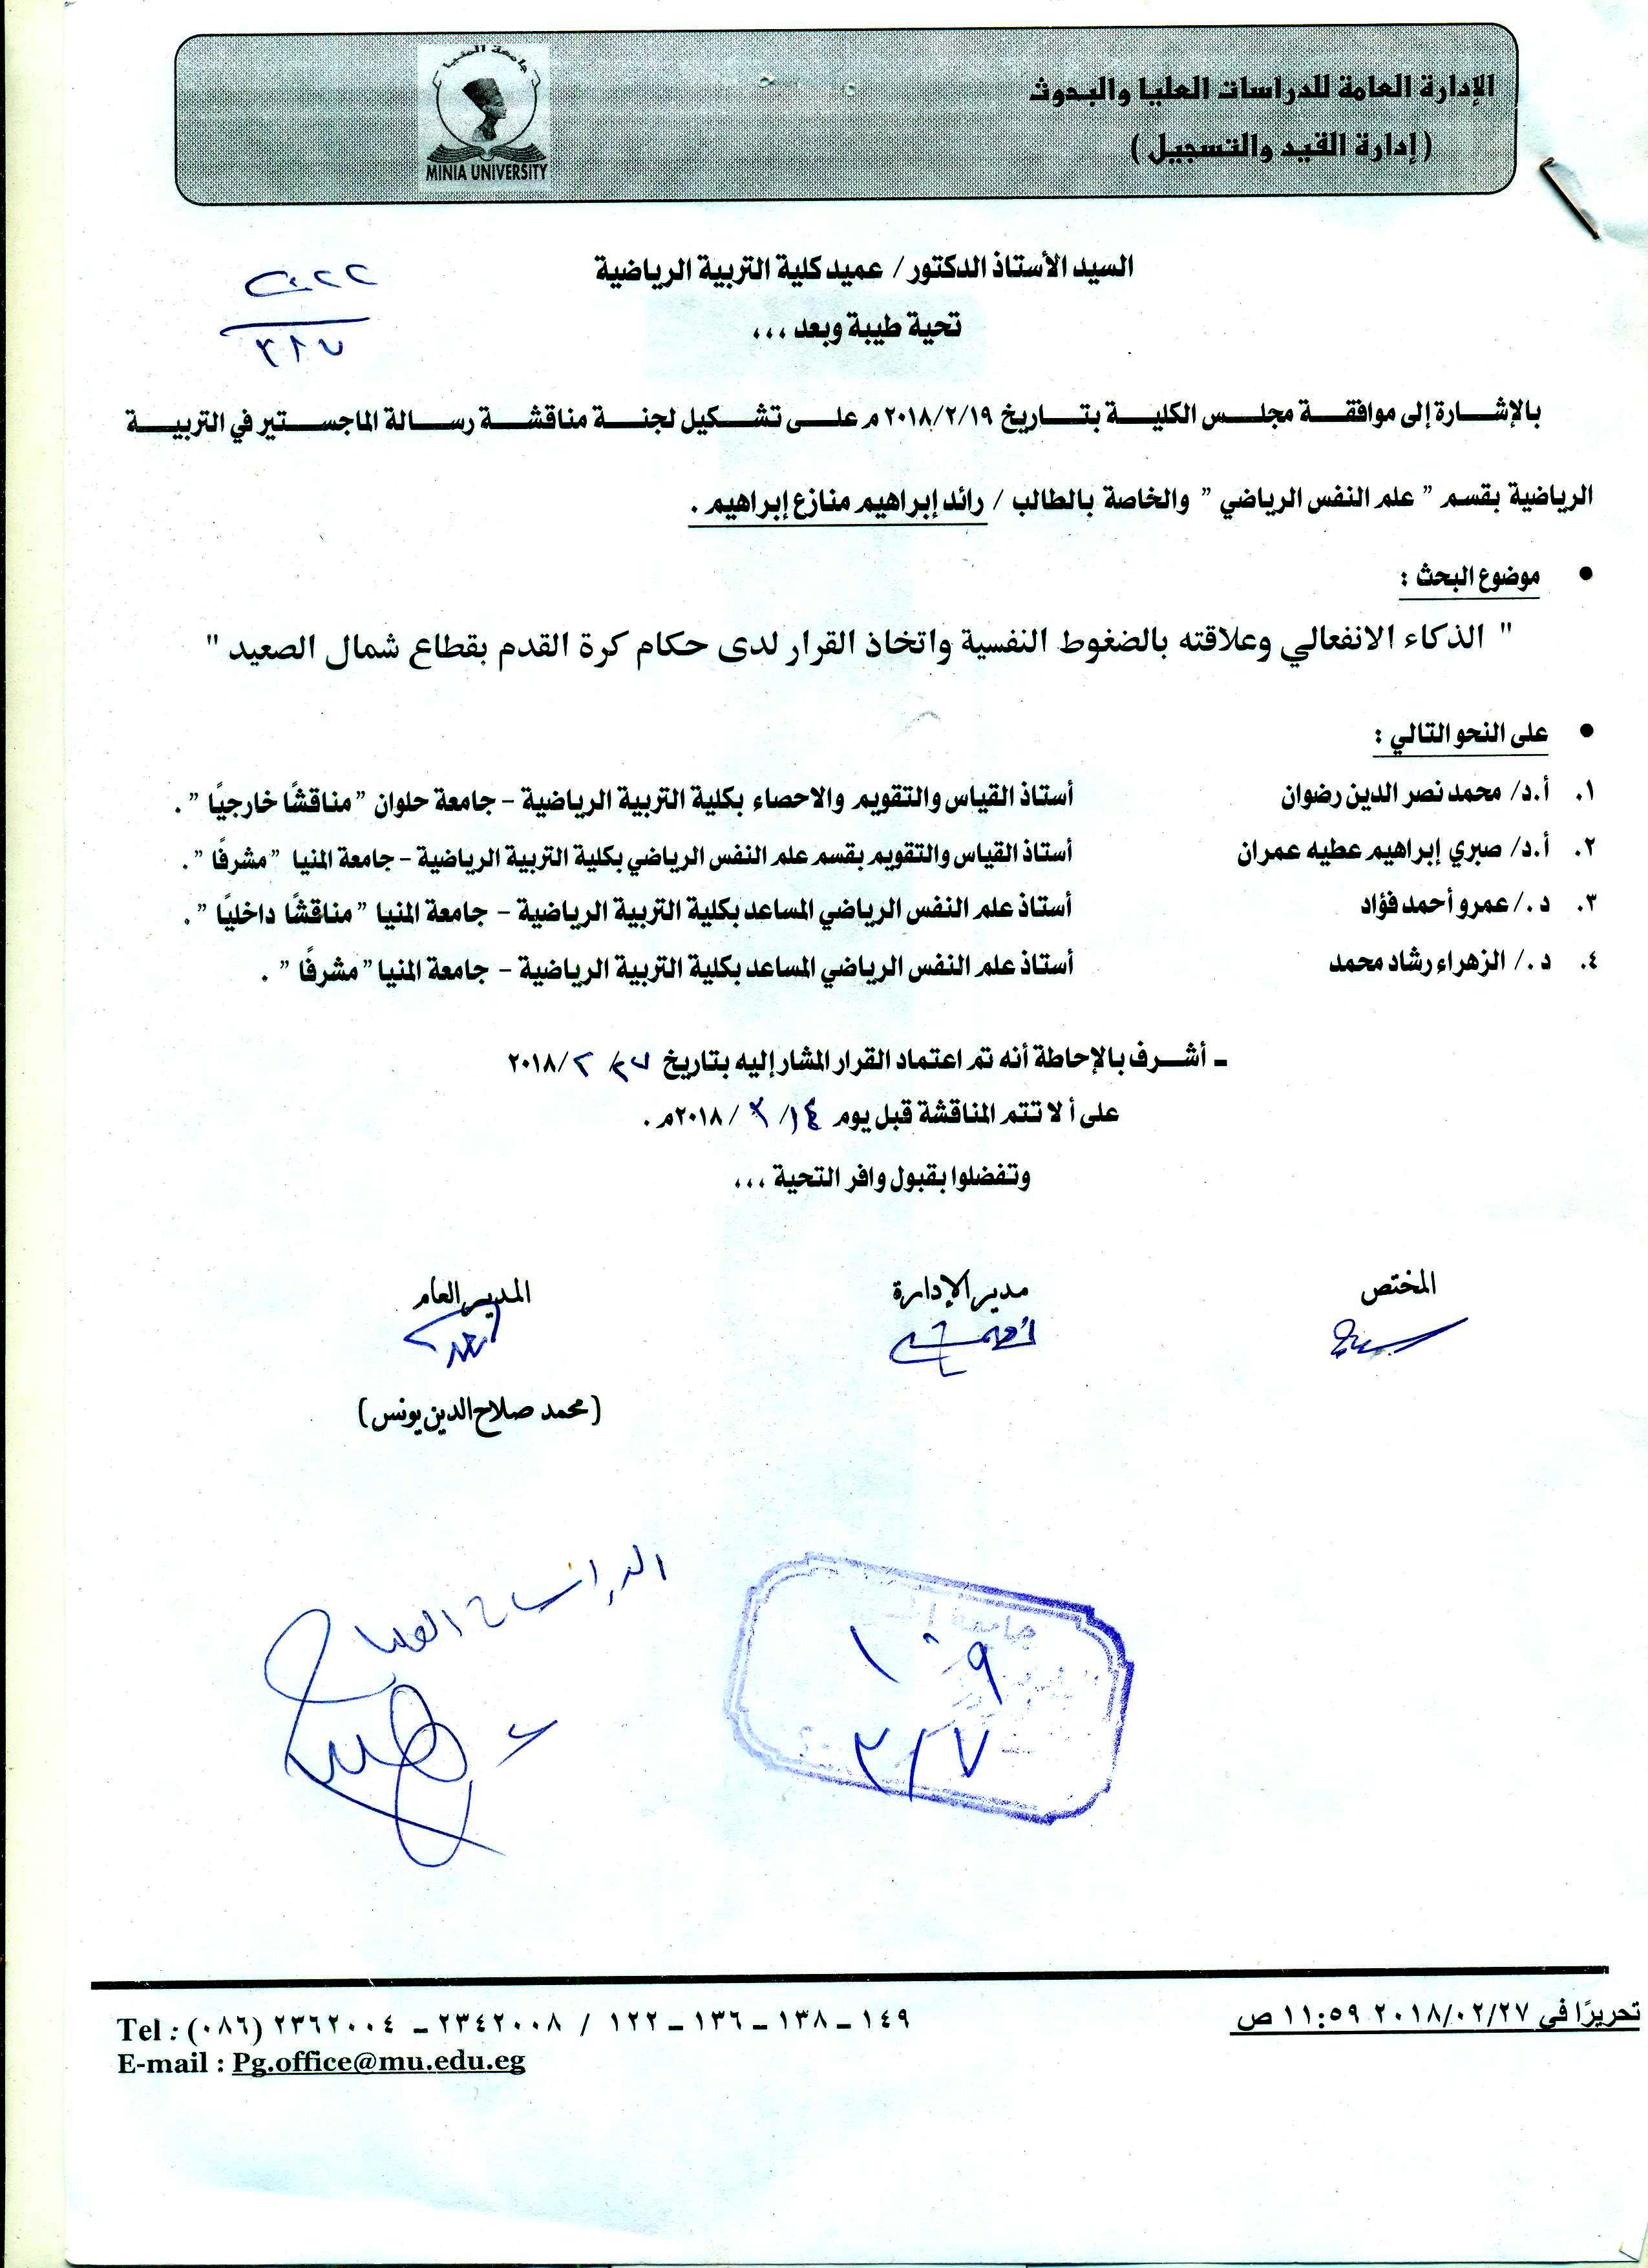 الإدارة العامة للدراسات العليا والبحوث
(إدارة القيد والتسجيل)
جامعة المنيا
MINIA UNIVERSITY
السيد الأستاذ الدكتور/ عميد كلية التربية الرياضية
تحية طيبة وبعد ،،،
بالإشارة إلى موافقة مجلس الكلية بتاريخ ٢٠١٨/٢/١٩م على تشكيل لجنة مناقشة رسالة الماجستير في التربية
الرياضية بقسم " علم النفس الرياضي " والخاصة بالطالب / رائد إبراهيم منازع إبراهيم .
• موضوع البحث :
" الذكاء الانفعالي وعلاقته بالضغوط النفسية واتخاذ القرار لدى حكام كرة القدم بقطاع شمال الصعيد "
• على النحو التالي :
١. أ.د/ محمد نصر الدين رضوان أستاذ القياس والتقويم والاحصاء بكلية التربية الرياضية – جامعة حلوان "مناقشًا خارجيًا " .
٢. أ.د/ صبري إبراهيم عطيه عمران أستاذ القياس والتقويم بقسم علم النفس الرياضي بكلية التربية الرياضية – جامعة المنيا "مشرفًا " .
٣. د ./ عمرو أحمد فؤاد أستاذ علم النفس الرياضي المساعد بكلية التربية الرياضية – جامعة المنيا "مناقشًا داخليًا " .
٤. د ./ الزهراء رشاد محمد أستاذ علم النفس الرياضي المساعد بكلية التربية الرياضية – جامعة المنيا "مشرفًا " .
ـ أشرف بالإحاطة أنه تم اعتماد القرار المشار إليه بتاريخ ٢٧/ ٢ /٢٠١٨
على ألا تتم المناقشة قبل يوم ١٤/ ٣ / ٢٠١٨م .
وتفضلوا بقبول وافر التحية ،،،
المختص مدير الإدارة المدير العام
(محمد صلاح الدين يونس)
الدراسات العليا
جامعة
١٠٩
٣/٧
تحريرًا في ٢٠١٨/٠٢/٢٧ ١١:٥٩ ص
Tel : (٠٨٦) ٢٣٦٢٠٠٤ – ٢٣٤٢٠٠٨ / ١٢٢ – ١٣٦ – ١٣٨ – ١٤٩
E-mail : Pg.office@mu.edu.eg